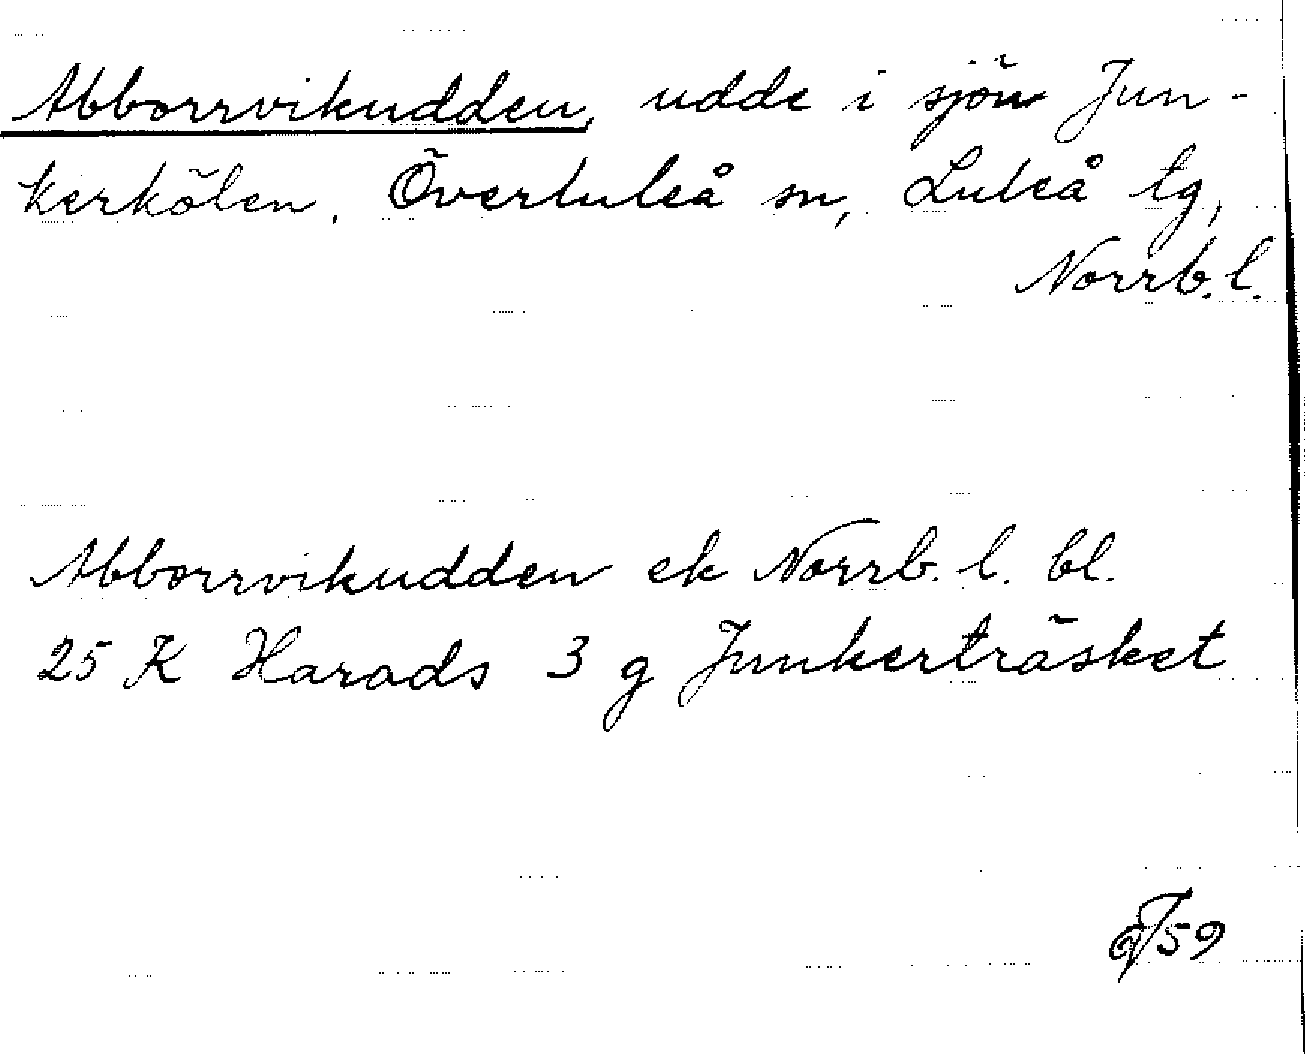 Abborrvikudden, udde i sjön Jun-
kerkölen. Överluleå sn, Luleå tg,
Norrb.l.
Abborrvikudden ek Norrb. l. bl.
25 K Harads 3 g Junkerträsket
59